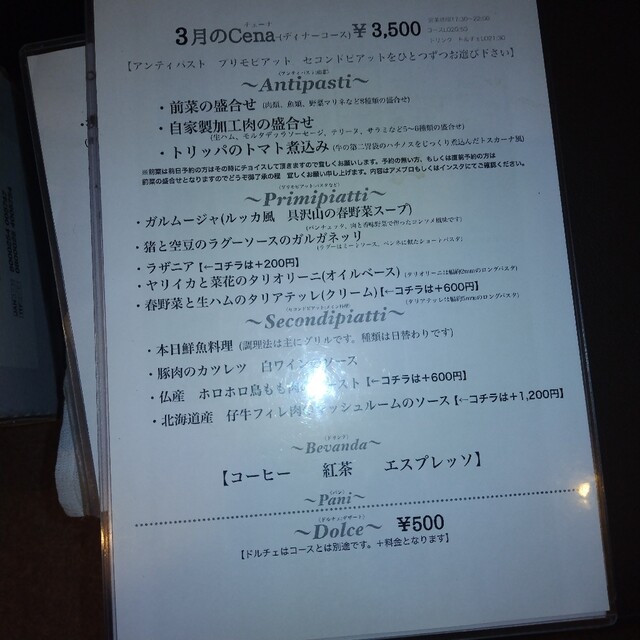 チェーナ
3月のCena-(ディナーコース) ￥3,500
【アンティパスト プリモピアット セコンドピアットをひとつずつお選び下さい】
～Antipasti～
・前菜の盛合せ (肉類、魚類、野菜マリネなど8種類の盛合せ)
・自家製加工肉の盛合せ
(生ハム、モルタデッラソーセージ、テリーヌ、サラミなど5～6種類の盛合せ)
・トリッパのトマト煮込み (牛の第二胃袋のハチノスをじっくり煮込んだトスカーナ風)
※前菜は前日予約の方はその時にチョイスして頂きますので宜しくお願いします。予約の無い方、もしくは直前予約の方は
前菜の盛合せとなりますのでどうぞ御了承の程 宜しくお願い申し上げます。内容はアメブロもしくはインスタにてご確認ください。
～Primipiatti～
・ガルムージャ(ルッカ風 具沢山の春野菜スープ)
・猪と空豆のラグーソースのガルガネッリ
(ラグーはミートソース、ペンネに似たショートパスタ)
・ラザニア【←コチラは＋200円】
・ヤリイカと菜花のタリオリーニ(オイルベース)
・春野菜と生ハムのタリアテッレ(クリーム)【←コチラは＋600円】
～Secondipiatti～
・本日鮮魚料理 (調理法は主にグリルです。種類は日替わりです)
・豚肉のカツレツ 白ワイン ソース
・仏産 ホロホロ鳥もも ースト【←コチラは＋600円】
・北海道産 仔牛フィレ肉 ッシュルームのソース【←コチラは＋1,200円】
～Bevanda～
【コーヒー 紅茶 エスプレッソ】
～Pani～
～Dolce～ ￥500
【ドルチェはコースとは別途です。＋料金となります】